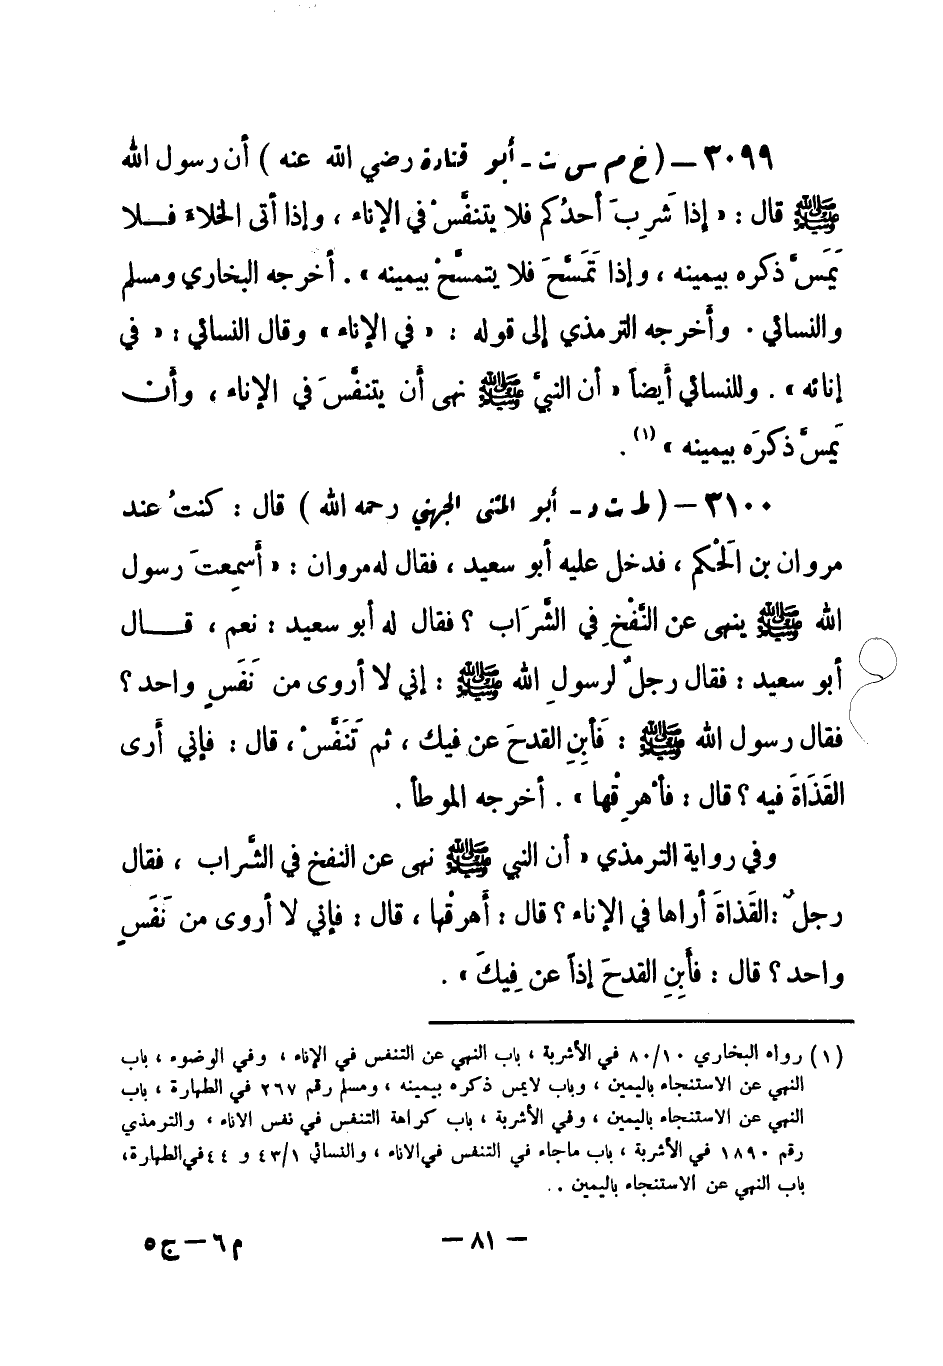 ٣٠٩٩ – ( خ م س ت - أبو قتادة رضي الله عنه ) أن رسول الله
ﷺ قال : « إذا شَرِبَ أحدُكم فلا يتنفَّسْ في الإناء ، وإذا أتى الخلاءَ فـلا
يَمَسَّ ذكره بيمينه ، وإذا تَمَسَّحَ فلا يتمسَّحْ بيمينه » . أخرجه البخاري ومسلم
والنسائي . وأخرجه الترمذي إلى قوله : « في الإناء » وقال النسائي : « في
إنائه » . وللنسائي أيضاً « أن النبيَّ ﷺ نهى أن يتنفَّسَ في الإناء ، وأن
يَمسَّ ذكرَه بيمينه » (١) .
٣١٠٠ – ( ط ت د - أبو المثنى الجهني رحمه الله ) قال : كنتُ عند
مروان بن الحَكم ، فدخل عليه أبو سعيد ، فقال له مروان : « أسمِعتَ رسول
الله ﷺ ينهى عن النَّفْخِ في الشَّرَاب ؟ فقال له أبو سعيد : نعم ، قـال
أبو سعيد : فقال رجلٌ لرسولِ الله ﷺ : إني لا أروى من نَفَسٍ واحد ؟
فقال رسول الله ﷺ : فَأَبِنِ القدحَ عن فيك ، ثم تَنَفَّسْ ، قال : فإني أرى
القَذَاةَ فيه ؟ قال : فأهْرِقْها » . أخرجه الموطأ .
وفي رواية الترمذي « أن النبي ﷺ نهى عن النفخ في الشَّراب ، فقال
رجلٌ : القَذاةَ أراها في الإناء ؟ قال : أَهرقْها ، قال : فإني لا أروى من نَفَسٍ
واحد ؟ قال : فأَبِنِ القدحَ إذاً عن فِيكَ » .
(١) رواه البخاري ٨٠/١٠ في الأشربة ، باب النهي عن التنفس في الإناء ، وفي الوضوء ، باب
النهي عن الاستنجاء باليمين ، وباب لايمس ذكره بيمينه ، ومسلم رقم ٢٦٧ في الطهارة ، باب
النهي عن الاستنجاء باليمين ، وفي الأشربة ، باب كراهة التنفس في نفس الاناء ، والترمذي
رقم ١٨٩٠ في الأشربة ، باب ماجاء في التنفس في الاناء ، والنسائي ٤٣/١ و ٤٤ في الطهارة،
باب النهي عن الاستنجاء باليمين . .
– ٨١ –
م ٦ – ج ٥